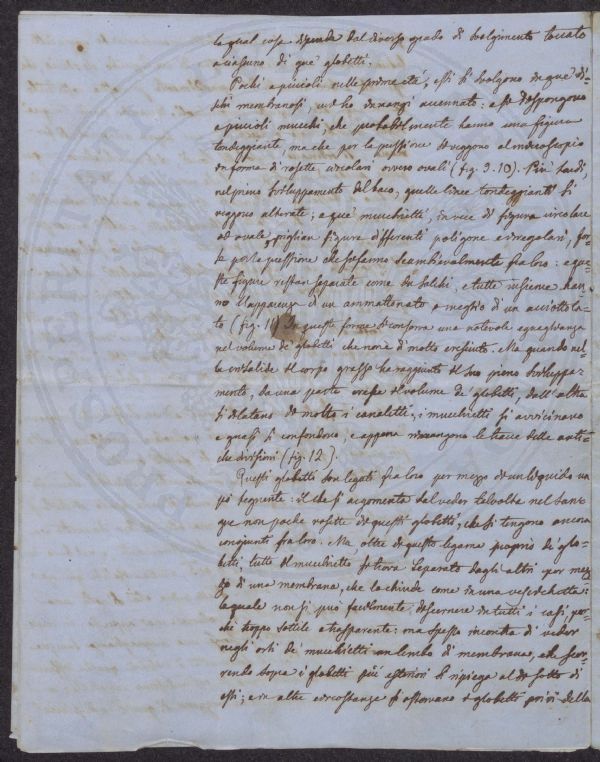 la qual cosa dipende dal diverso grado di svolgimento toccato
a ciascuno di que' globetti.
Pochi e piccioli nelle prime età, essi si svolgono in que' di-
schi membranosi, cui ho dinanzi accennato: e si dispongono
a piccioli mucchi, che probabilmente hanno una figura
tondeggiante, ma che per la pressione si veggono al microscopio
in forma di rosette, circolari ovvero ovali (fig. 9.10). Più tardi,
nel pieno sviluppamento del baco, quelle linee tondeggianti si
veggono alterate; e que' mucchietti, in vece di figura circolare
od ovale, pigliano figure differenti poligone e irregolari, for-
se per la pressione che si fanno scambievolmente fra loro: e que-
ste figure restan separate come da solchi, e tutte insieme han-
no l'apparenza di un ammattonato o meglio di un acciottola-
to (fig. 11). In queste forme si conserva una notevole eguaglianza
nel volume de' globetti che non è di molto cresciuto. Ma quando nel-
la crisalide il corpo grasso ha raggiunto il suo pieno sviluppa-
mento, da una parte cresce il volume de' globetti, dall'altra
si dilatano di molto i canaletti, i mucchietti si avvicinano
e quasi si confondono; e appena rimangono le tracce delle anti-
che divisioni (fig. 12).
Questi globetti son legati fra loro per mezzo di un liquido un
po' tegnente: il che si argomenta dal veder talvolta nel san-
gue non poche rosette di questi globetti, che si tengono ancora
congiunti fra loro. Ma, oltre di questo legame proprio di glo-
betti, tutto il mucchietto si trova separato dagli altri per mez-
zo di una membrana, che lo chiude come in una vescichetta:
la quale non si può facilmente discernere in tutti i casi, per-
chè troppo sottile e trasparente: ma spesso incontra di veder
negli orli de' mucchietti un lembo di membrana, che scor-
rendo sopra i globetti più esteriori si ripiega al di sotto di
essi; e in altre circostanze si osservano i globetti privi della